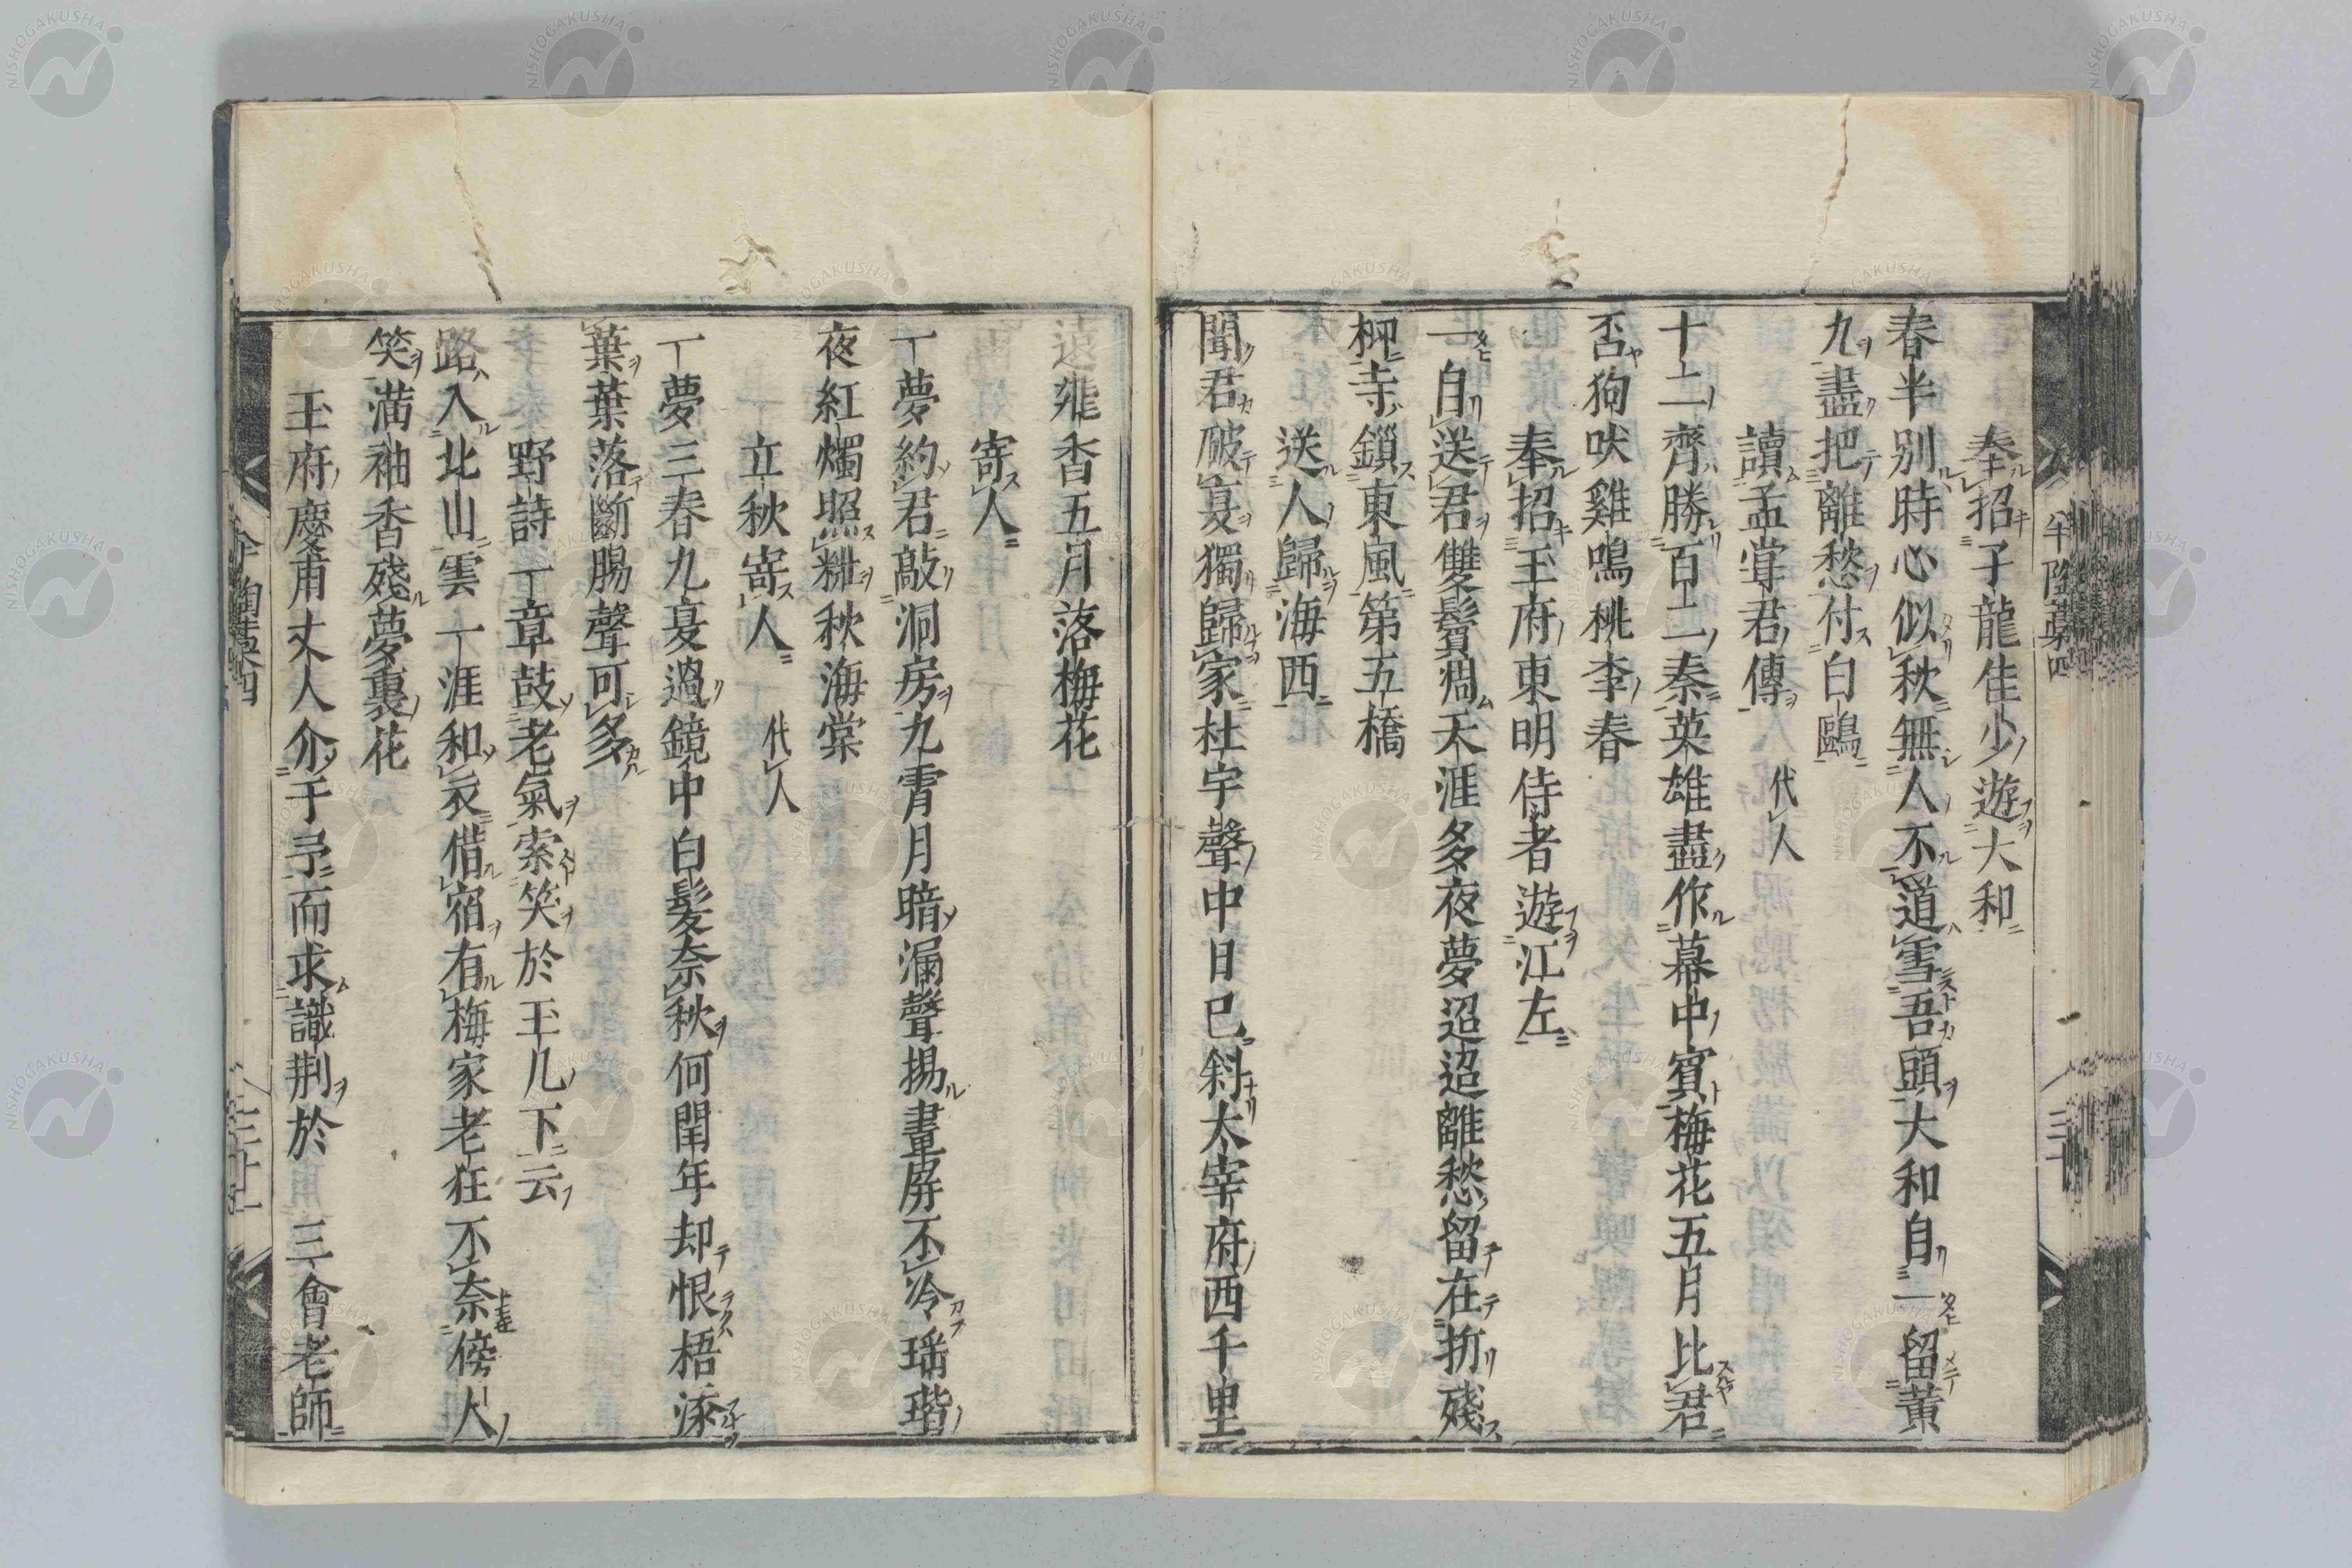 奉招子龍佳少遊大和
春半別時心似秋無人不道雪吾頭大和自一留黃
九盡把離愁付白鷗
讀孟甞君傳 代人
十二齊勝百二秦英雄盡作幕中賓梅花五月比君
否狗吠雞鳴桃李春
奉招玉府東明侍者遊江左
一自送君雙鬢凋天涯多夜夢迢迢離愁留在折殘
柳寺鎖東風第五橋
送人歸海西
聞君破夏獨歸家杜宇聲中日已斜太宰府西千里
遠雞香五月落梅花
寄人
一夢約君敲洞房九霄月暗漏聲揚畫屏不冷瑶堦
夜紅燭照粧秋海棠
立秋寄人 代人
一夢三春九夏過鏡中白髮奈秋何閏年却恨梧添
葉葉落斷腸聲可多
野詩一章鼓老氣索笑於玉几下云
路入北山雲一涯和衣借宿有梅家老狂不奈傍人
笑滿袖香殘夢裏花
玉府慶甫丈人介于予而求識荆於 三會老師